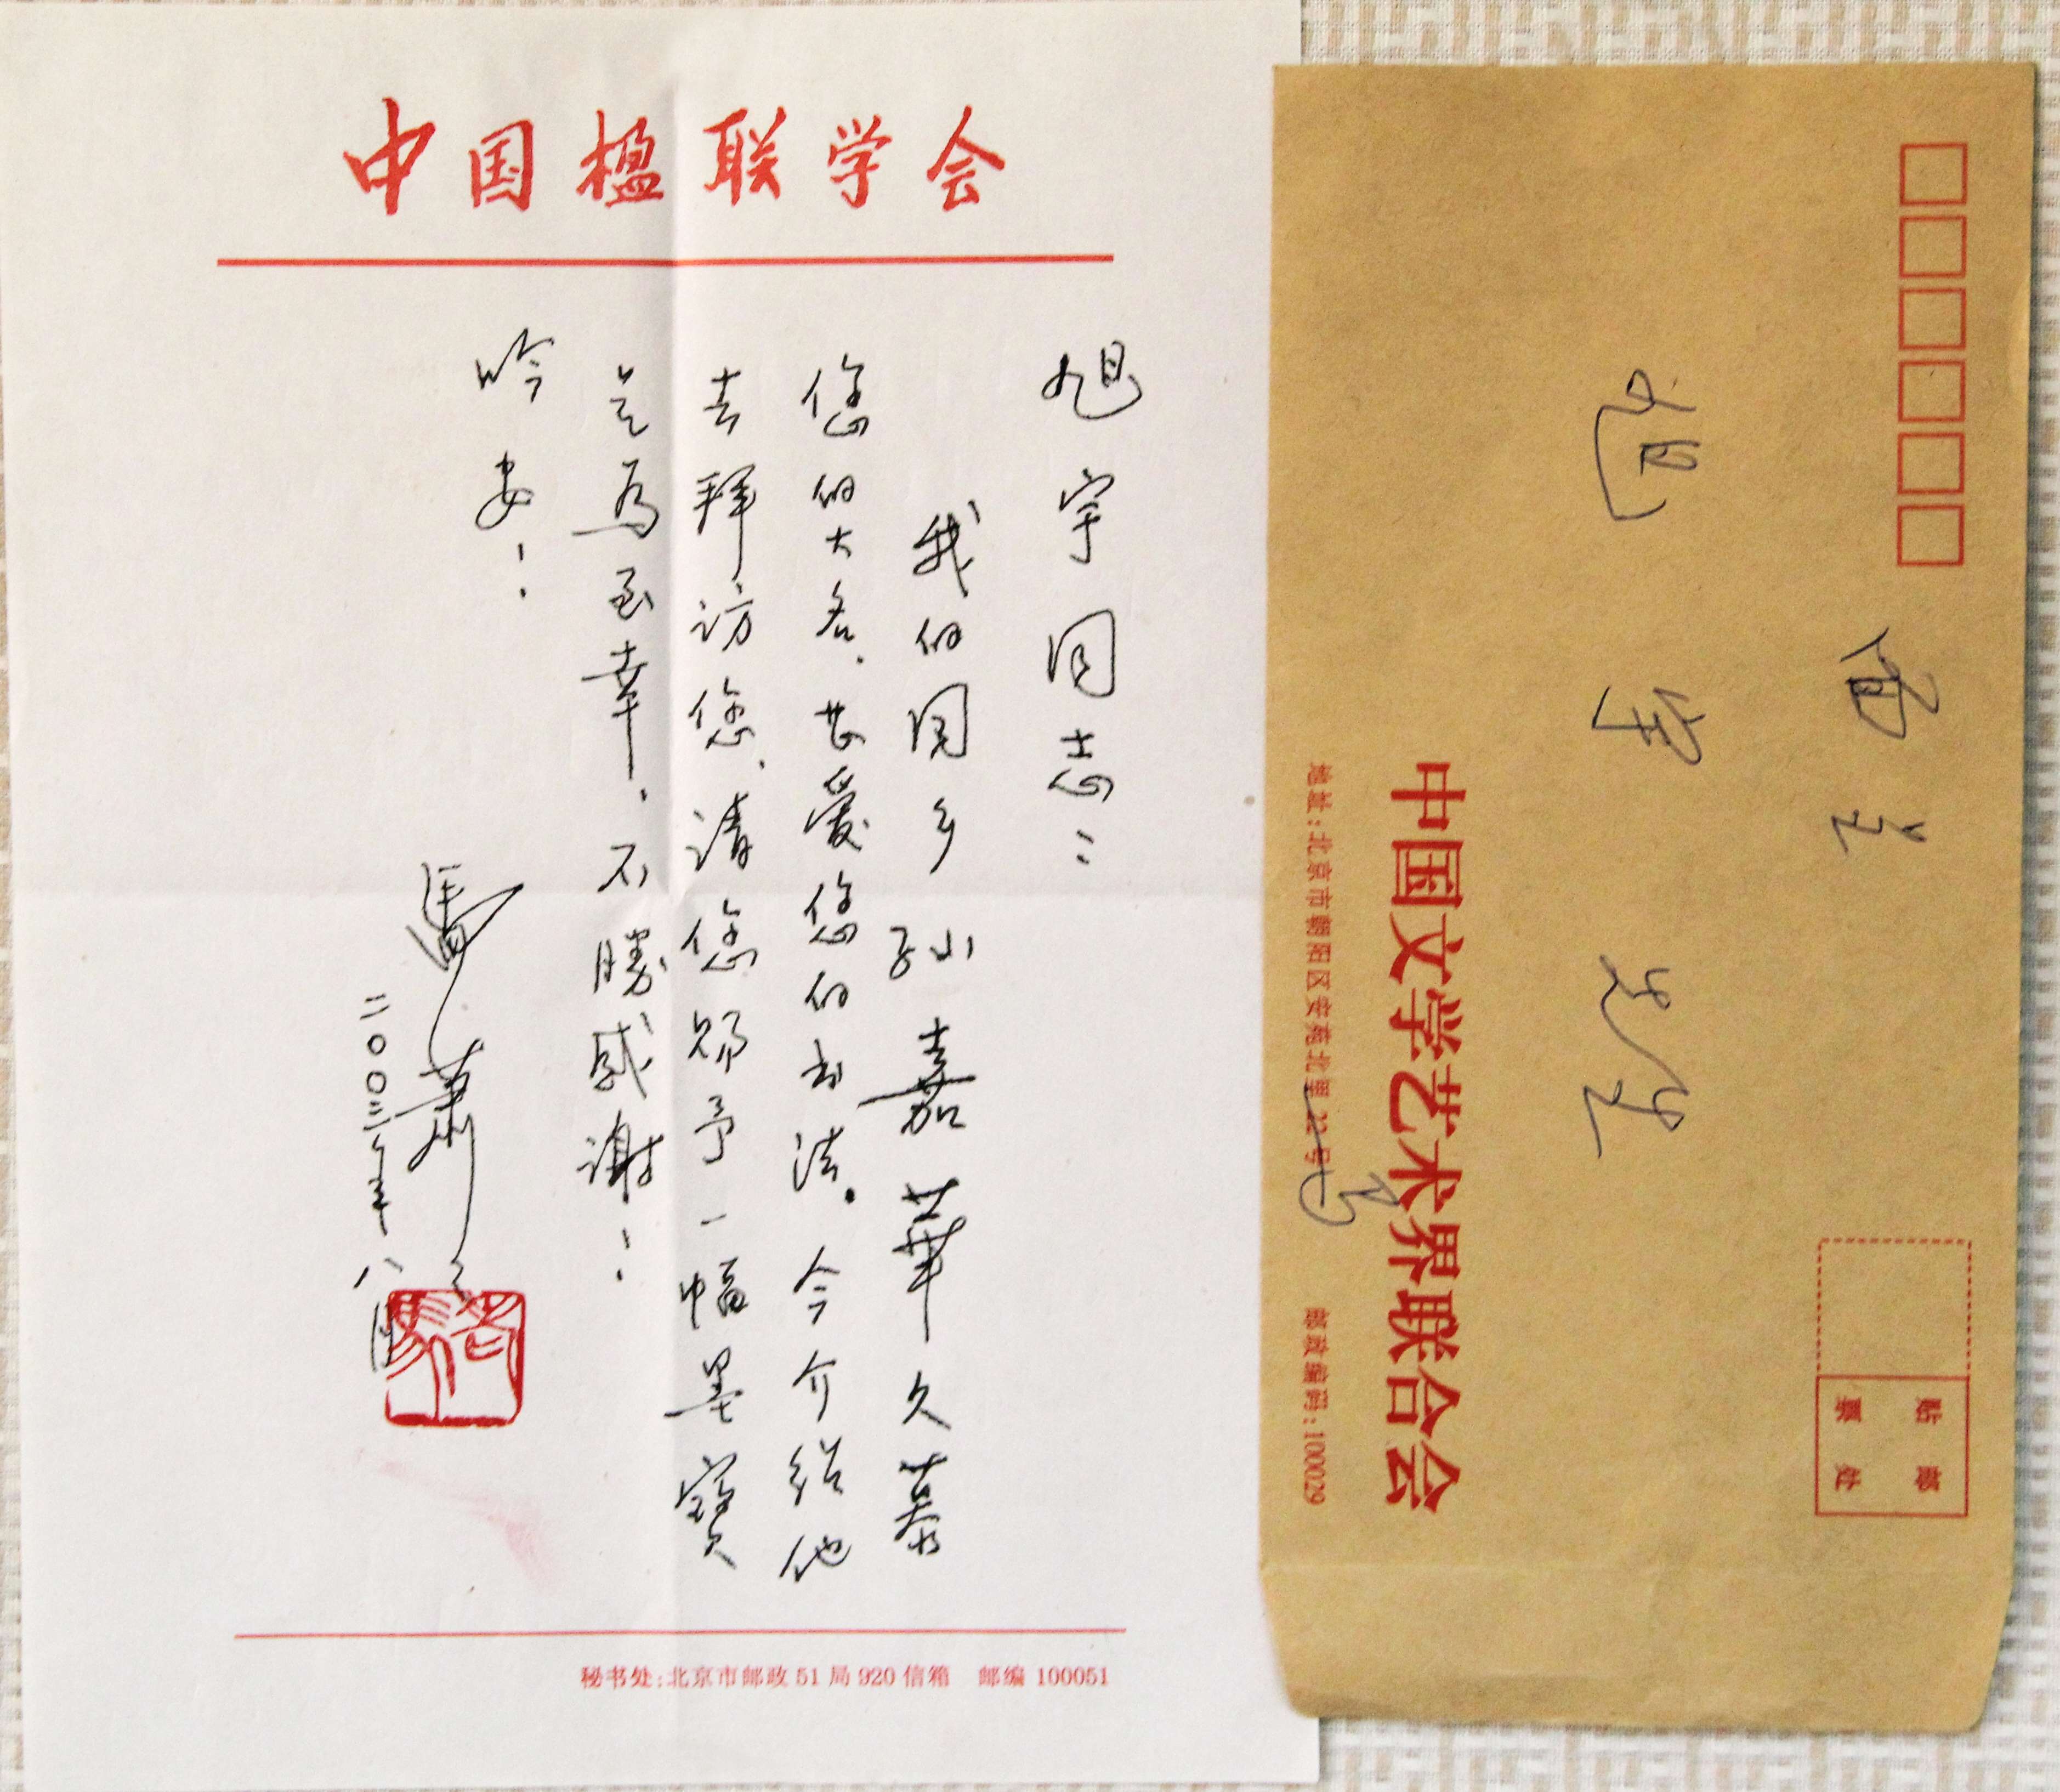 中国楹联学会
旭宇同志：
我的同乡孙嘉华久慕
您的大名，甚爱您的书法。今介绍他
去拜访您，请您赐予一幅墨宝
是为至幸，不胜感谢！
吟安！
马萧萧
二〇〇三年八月
秘书处：北京市邮政51局920信箱 邮编 100051
面呈
旭宇 先生
马
中国文学艺术界联合会
地址：北京市朝阳区安苑北里22号 邮政编码：100029
贴邮
票处